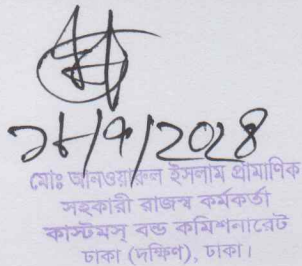 মোঃ আনওয়ারুল ইসলাম প্রামাণিক
সহকারী রাজস্ব কর্মকর্তা
কাস্টমস্ বন্ড কমিশনারেট
ঢাকা (দক্ষিণ), ঢাকা।